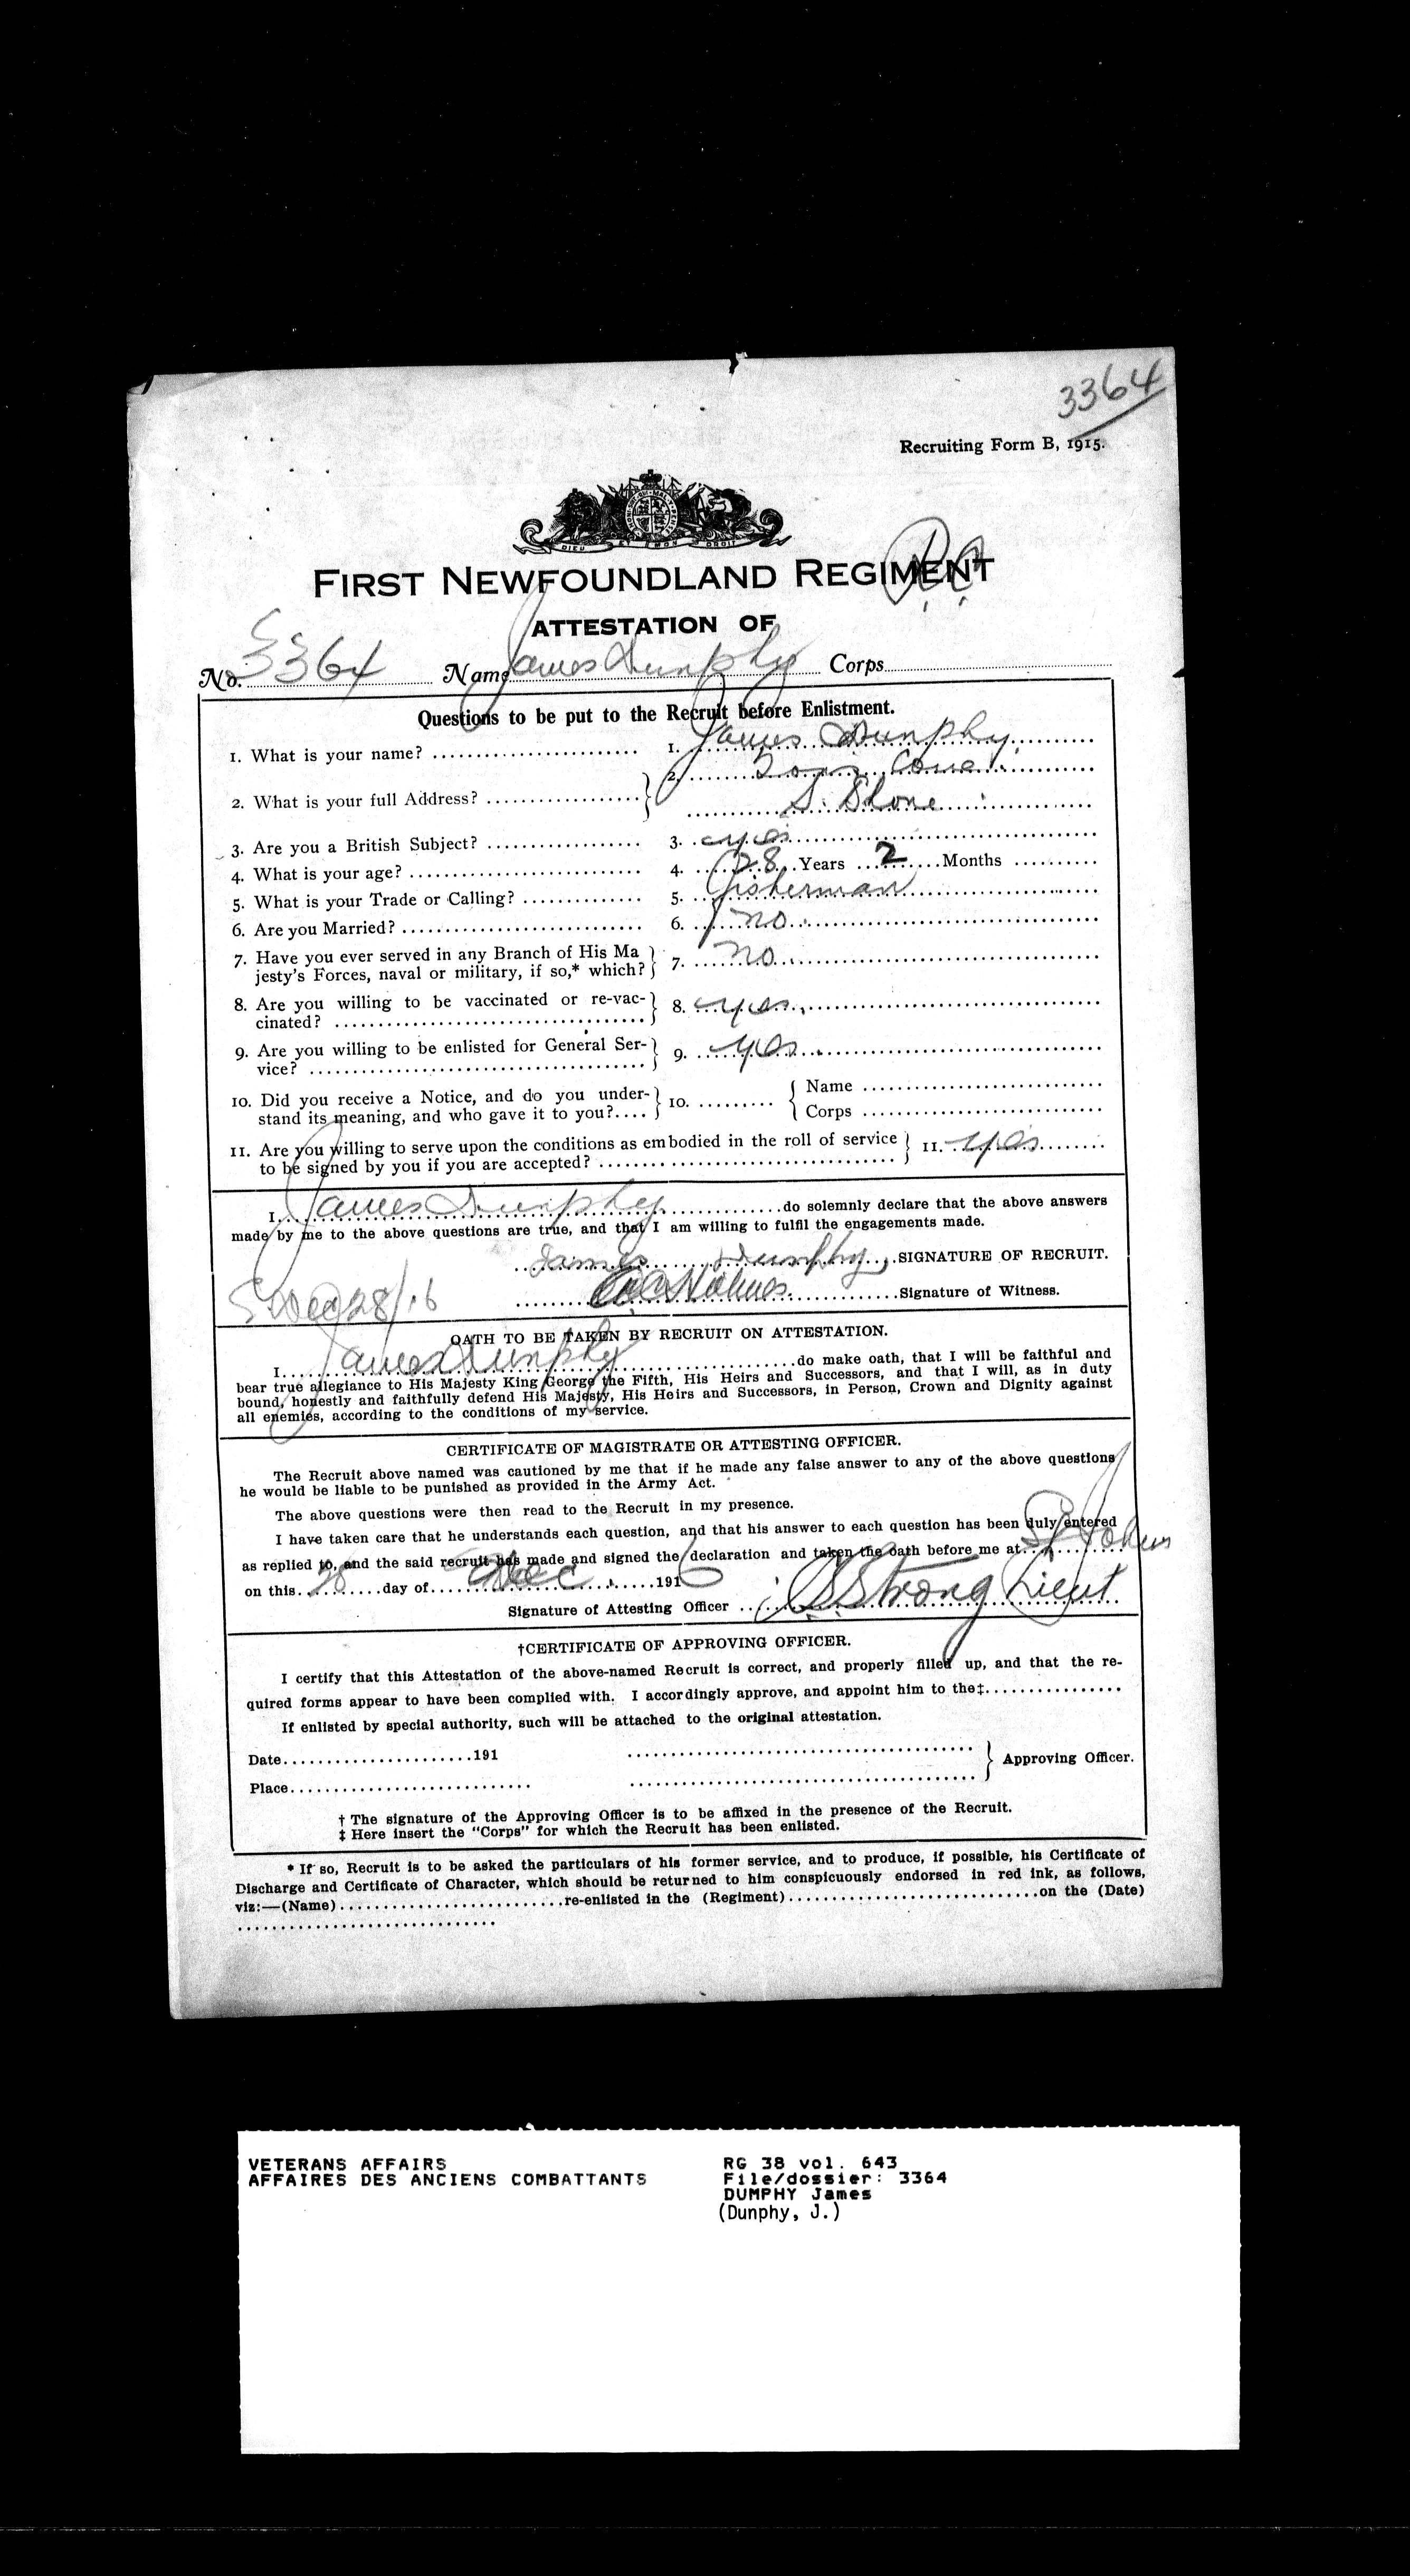 3364
Recruiting Form B, 1915.
DIEU ET MON DROIT
R.C.
FIRST NEWFOUNDLAND REGIMENT
ATTESTATION OF
No. 3364 Name James Dunphy Corps
Questions to be put to the Recruit before Enlistment.
1. What is your name? 1. James Dunphy
2. What is your full Address? 2. Cove
S. Shore
3. Are you a British Subject? 3. yes
4. What is your age? 4. 28 Years 2 Months
5. What is your Trade or Calling? 5. fisherman
6. Are you Married? 6. no
7. Have you ever served in any Branch of His Ma
jesty's Forces, naval or military, if so,* which? 7. no
8. Are you willing to be vaccinated or re-vac-
cinated? 8. yes
9. Are you willing to be enlisted for General Ser-
vice? 9. yes
10. Did you receive a Notice, and do you under-
stand its meaning, and who gave it to you? 10. Name
Corps
11. Are you willing to serve upon the conditions as embodied in the roll of service
to be signed by you if you are accepted? 11. yes
I James Dunphy do solemnly declare that the above answers
made by me to the above questions are true, and that I am willing to fulfil the engagements made.
James Dunphy SIGNATURE OF RECRUIT.
Dec 28/16 Holmes Signature of Witness.
OATH TO BE TAKEN BY RECRUIT ON ATTESTATION.
I James Dunphy do make oath, that I will be faithful and
bear true allegiance to His Majesty King George the Fifth, His Heirs and Successors, and that I will, as in duty
bound, honestly and faithfully defend His Majesty, His Heirs and Successors, in Person, Crown and Dignity against
all enemies, according to the conditions of my service.
CERTIFICATE OF MAGISTRATE OR ATTESTING OFFICER.
The Recruit above named was cautioned by me that if he made any false answer to any of the above questions
he would be liable to be punished as provided in the Army Act.
The above questions were then read to the Recruit in my presence.
I have taken care that he understands each question, and that his answer to each question has been duly entered
as replied to, and the said recruit has made and signed the declaration and taken the oath before me at St Johns
on this 28 day of Dec 1916
Signature of Attesting Officer Strong Lieut
†CERTIFICATE OF APPROVING OFFICER.
I certify that this Attestation of the above-named Recruit is correct, and properly filled up, and that the re-
quired forms appear to have been complied with. I accordingly approve, and appoint him to the‡
If enlisted by special authority, such will be attached to the original attestation.
Date 191
Approving Officer.
Place
† The signature of the Approving Officer is to be affixed in the presence of the Recruit.
‡ Here insert the "Corps" for which the Recruit has been enlisted.
* If so, Recruit is to be asked the particulars of his former service, and to produce, if possible, his Certificate of
Discharge and Certificate of Character, which should be returned to him conspicuously endorsed in red ink, as follows,
viz:—(Name) re-enlisted in the (Regiment) on the (Date)
VETERANS AFFAIRS
AFFAIRES DES ANCIENS COMBATTANTS
RG 38 vol. 643
File/dossier: 3364
DUMPHY James
(Dunphy, J.)